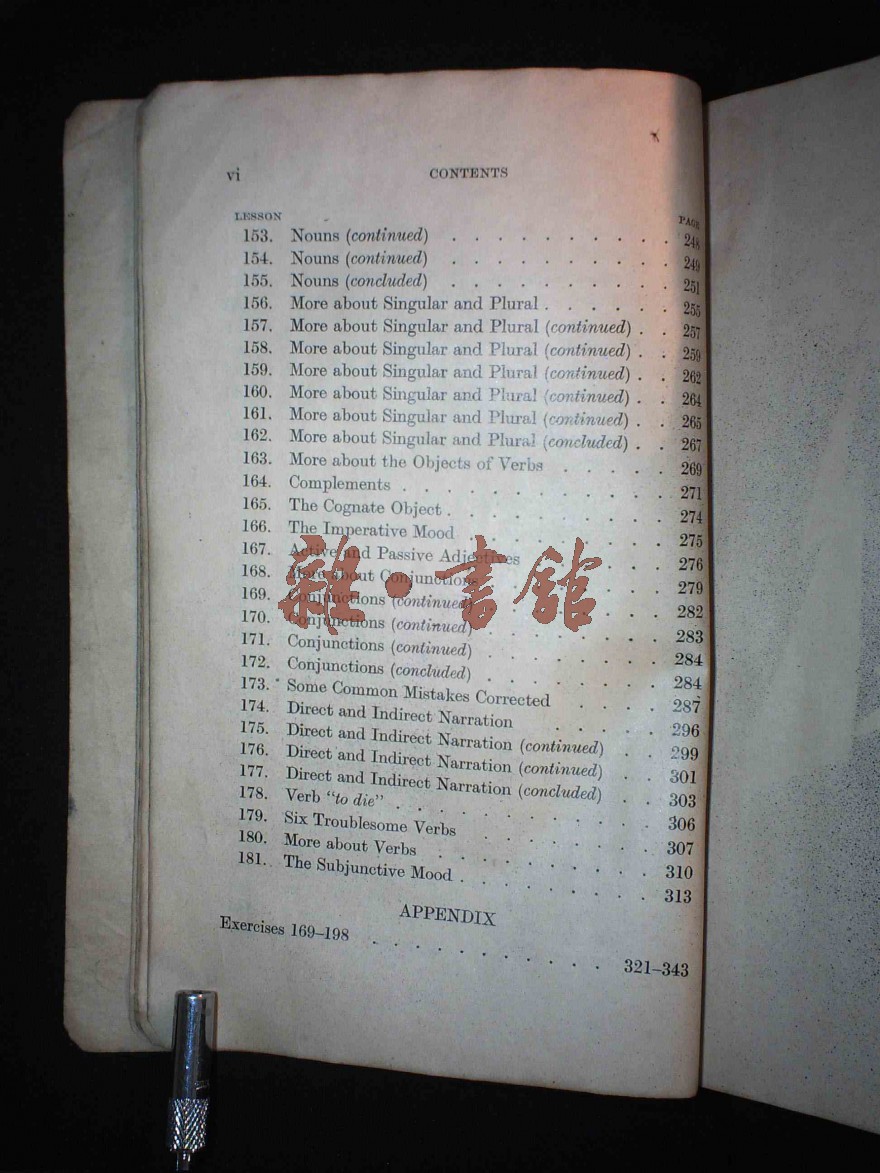 vi CONTENTS
LESSON PAGE
153. Nouns (continued) . . . . . . . . . . 248
154. Nouns (continued) . . . . . . . . . . 249
155. Nouns (concluded) . . . . . . . . . . 251
156. More about Singular and Plural . . . . . . 255
157. More about Singular and Plural (continued) . . 257
158. More about Singular and Plural (continued) . . 259
159. More about Singular and Plural (continued) . . 262
160. More about Singular and Plural (continued) . . 264
161. More about Singular and Plural (continued) . . 265
162. More about Singular and Plural (concluded) . . 267
163. More about the Objects of Verbs . . . . . 269
164. Complements . . . . . . . . . . . 271
165. The Cognate Object . . . . . . . . . 274
166. The Imperative Mood . . . . . . . . 275
167. Active and Passive Adjectives . . . . . 276
168. More about Conjunctions . . . . . . . 279
169. Conjunctions (continued) . . . . . . . 282
170. Conjunctions (continued) . . . . . . . 283
171. Conjunctions (continued) . . . . . . . 284
172. Conjunctions (concluded) . . . . . . . 284
173. Some Common Mistakes Corrected . . . . 287
174. Direct and Indirect Narration . . . . . 296
175. Direct and Indirect Narration (continued) . . 299
176. Direct and Indirect Narration (continued) . . 301
177. Direct and Indirect Narration (concluded) . . 303
178. Verb "to die" . . . . . . . . . . 306
179. Six Troublesome Verbs . . . . . . . 307
180. More about Verbs . . . . . . . . . 310
181. The Subjunctive Mood . . . . . . . . 313
APPENDIX
Exercises 169–198 . . . . . . . . . . 321–343
雜·書館